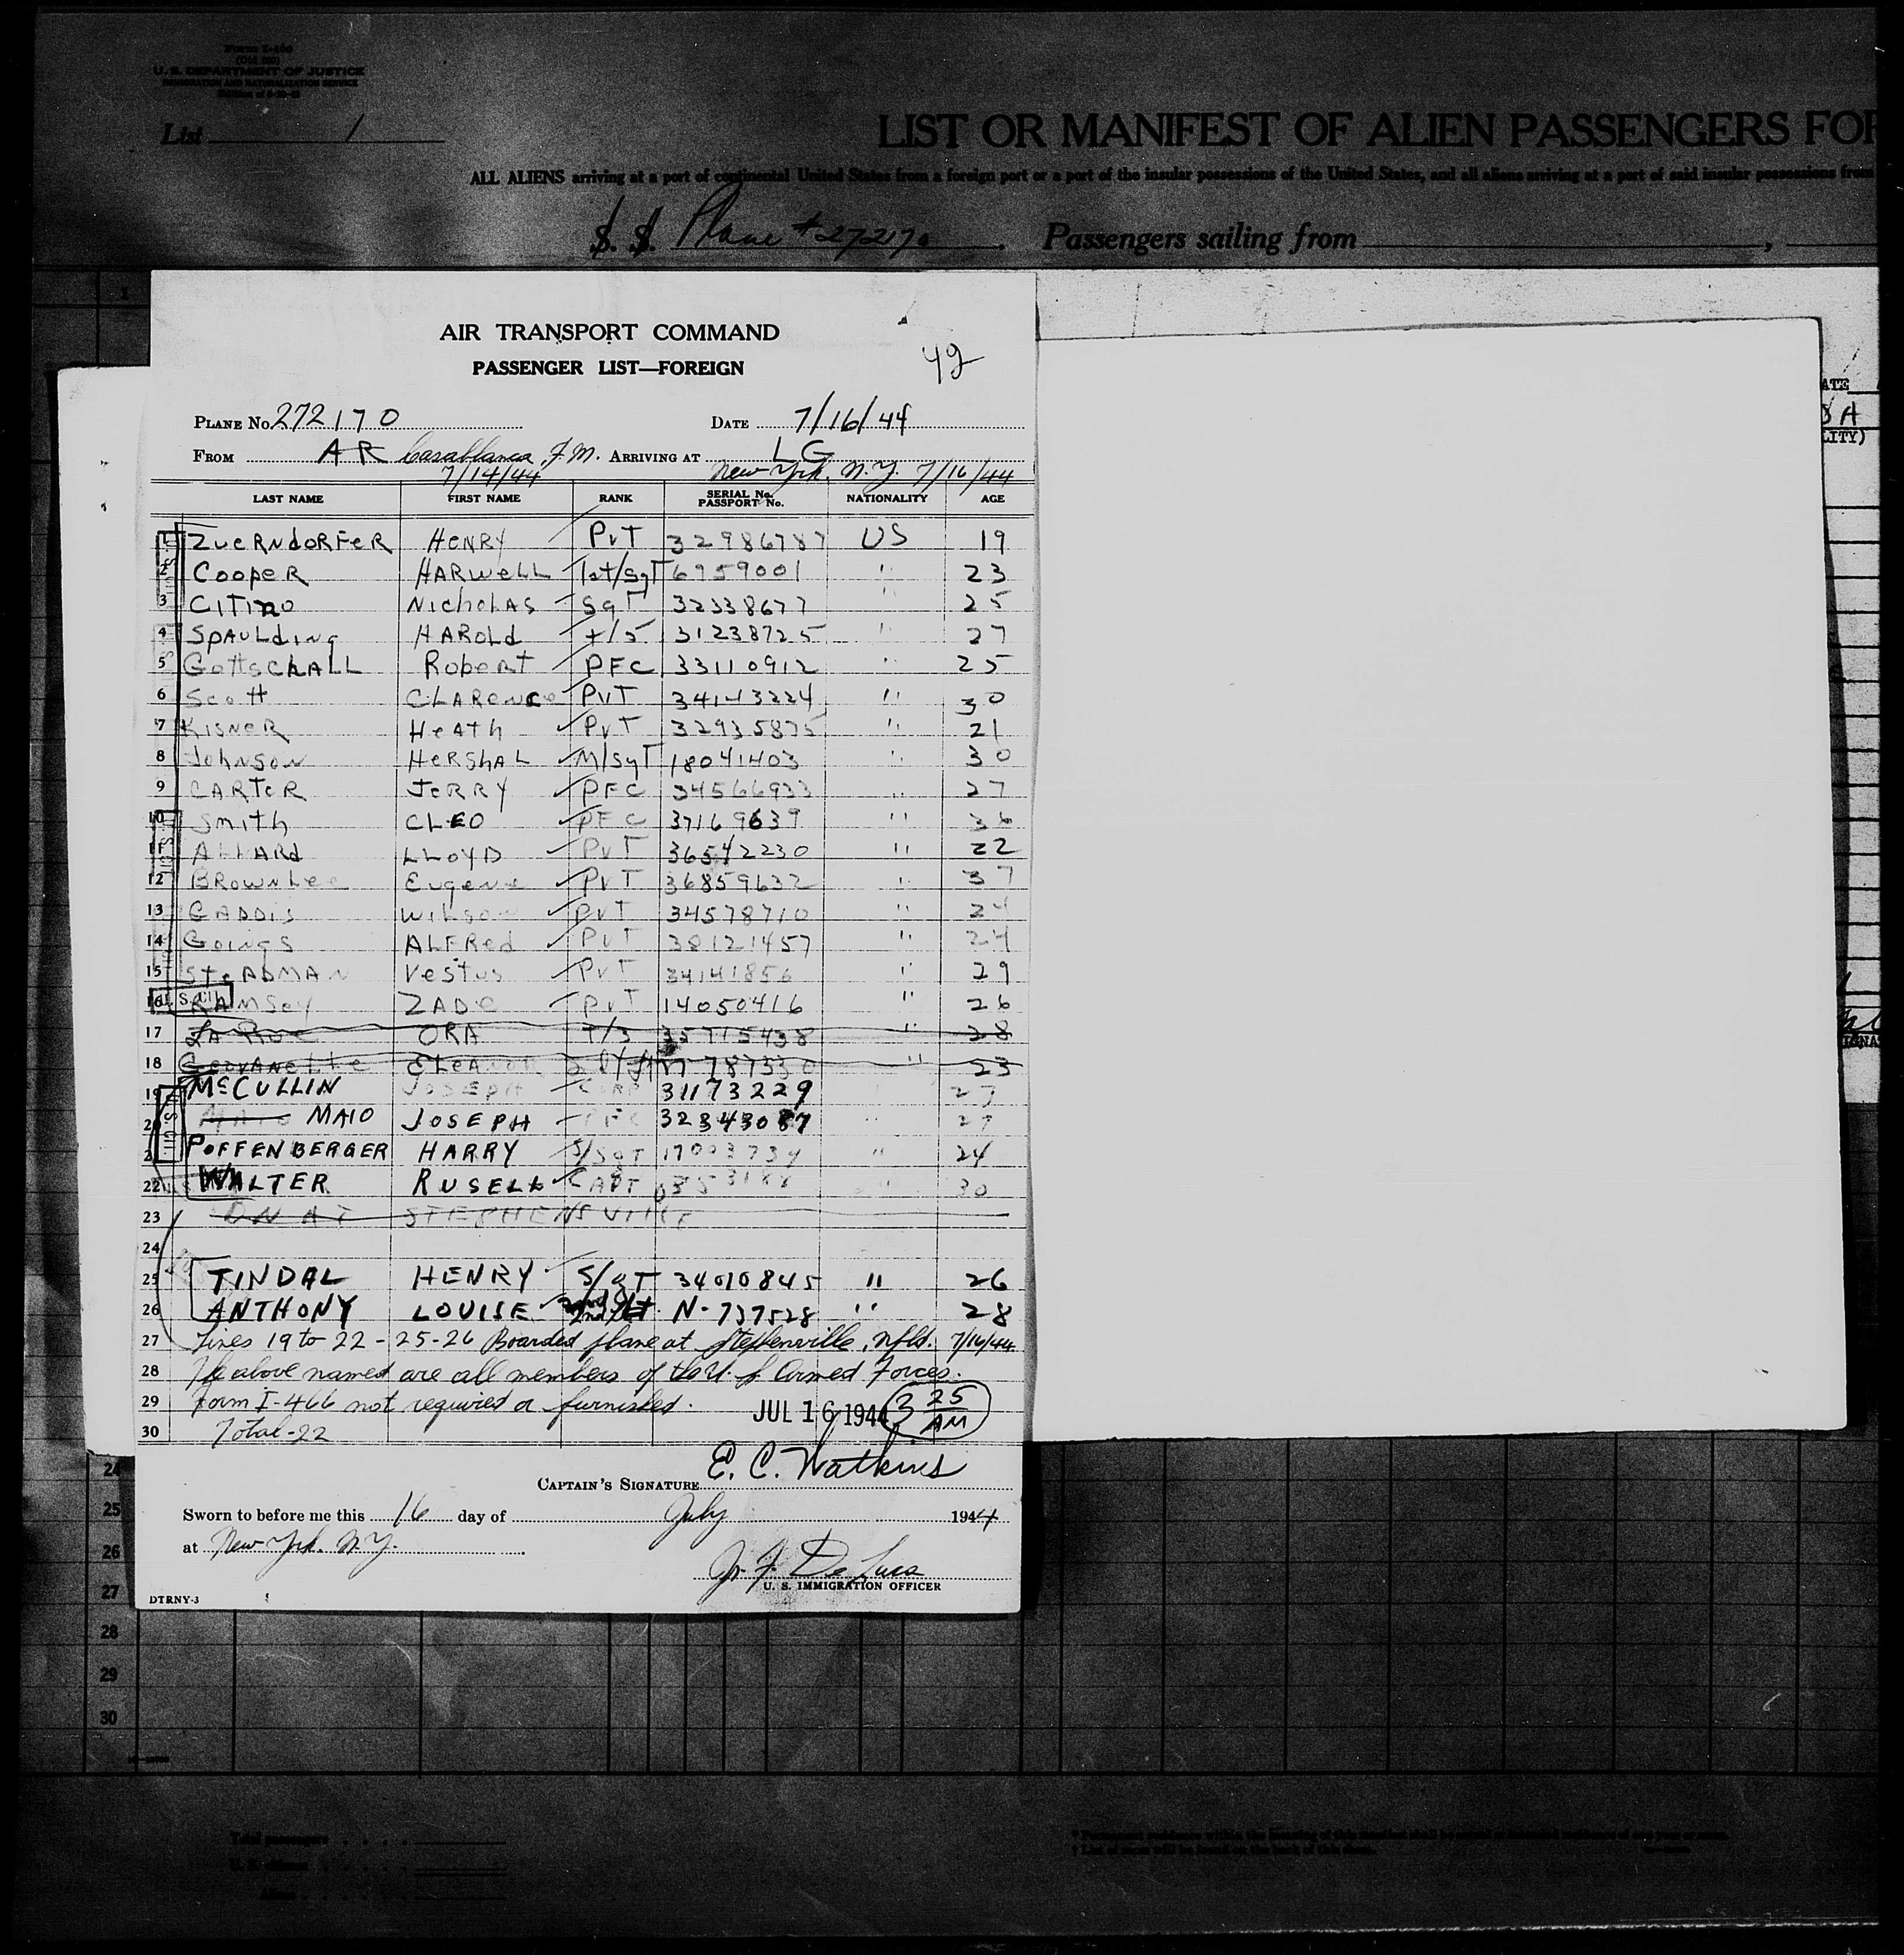 Form I-466
(Old 680)
U. S. DEPARTMENT OF JUSTICE
IMMIGRATION AND NATURALIZATION SERVICE
List 1
LIST OR MANIFEST OF ALIEN PASSENGERS FOR
ALL ALIENS arriving at a port of continental United States from a foreign port or a port of the insular possessions of the United States, and all aliens arriving at a port of said insular possessions from
S. S. Plane # 272170 . Passengers sailing from ,
AIR TRANSPORT COMMAND
PASSENGER LIST—FOREIGN
42
PLANE No. 272170 DATE 7/16/44
FROM AR Casablanca, F.M. ARRIVING AT LG
7/14/44 New York, N.Y. 7/16/44
LAST NAME FIRST NAME RANK SERIAL No. PASSPORT No. NATIONALITY AGE
1 ZUERNDORFER HENRY PVT 32986787 US 19
2 COOPER HARWELL 1st/SgT 6959001 " 23
3 CITINO NICHOLAS SgT 32338677 " 25
4 SPAULDING HAROLD T/5 31238725 " 27
5 GOTTSCHALL ROBERT PFC 33110912 " 25
6 SCOTT CLARENCE PVT 34143224 " 30
7 KISNER HEATH PVT 32935875 " 21
8 JOHNSON HERSHAL M/SgT 18041403 " 30
9 CARTER JERRY PFC 34566933 " 27
10 SMITH CLEO PFC 37169639 " 36
11 ALLARD LLOYD PVT 36542230 " 22
12 BROWNLEE EUGENE PVT 36859632 " 37
13 GADDIS WILSON PVT 34578710 " 24
14 GOINGS ALFRED PVT 38121457 " 24
15 STEADMAN VESTUS PVT 34141856 " 29
16 RAMSEY ZADE PVT 14050416 " 26
17 LA RUE ORA T/3 35715438 " 28
18 ELEANOR 787330 " 23
19 McCULLIN JOSEPH CORP 31173229 27
20 MAIO MAIO JOSEPH PFC 32343087 " 27
21 POFFENBERGER HARRY S/SGT 17003734 " 24
22 WALTER RUSELL CAPT " 30
23 ON AT STEPHENSVILLE
24
25 TINDAL HENRY S/gT 34010845 " 26
26 ANTHONY LOUISE 2nd/Lt N-737528 " 28
27 Lines 19 to 22-25-26 Boarded plane at Stephenville, Nfld. 7/16/44
28 The above named are all members of the U.S. Armed Forces.
29 Form I-466 not required or furnished. JUL 16 1944 3 25 AM
30 Total-22
CAPTAIN'S SIGNATURE E. C. Watkins
Sworn to before me this 16 day of July 1944
at New York, N.Y.
J. F. De Luca
U. S. IMMIGRATION OFFICER
DTRNY-3
24
25
26
27
28
29
30
Total passengers
U. S. citizens
Aliens